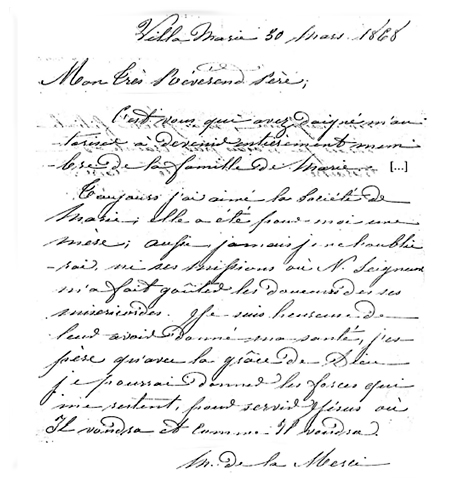 Villa Maria 30 Mars 1868
Mon très Révérend Père,
C'est vous qui avez daigné m'au-
toriser à devenir entièrement mem-
bre de la famille de Marie [...]
Toujours j'ai aimé la Société de
Marie; elle a été pour moi une
mère; aussi jamais je n'oublie-
rai ni ses missions où N. Seigneur
m'a fait goûter les douceurs de ses
miséricordes. Je suis heureuse de
leur avoir donné ma santé, j'es-
père qu'avec la grâce de Dieu
je pourrai donner les forces qui
me restent, pour servir Jésus où
Il voudra et comme Il voudra.
M. de la Merci